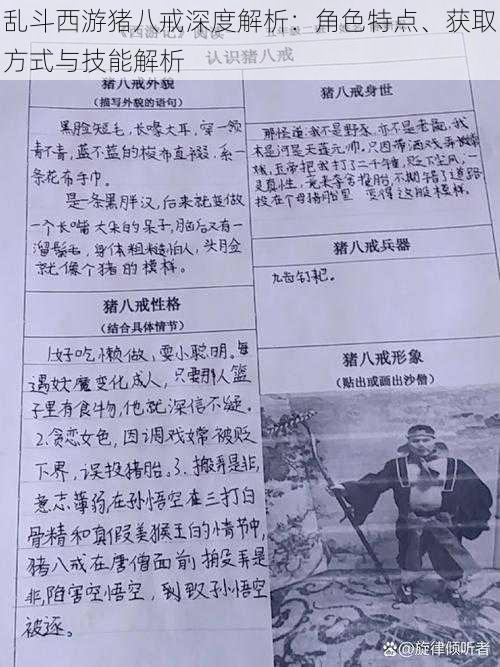 乱斗西游猪八戒深度解析：角色特点、获取
方式与技能解析
《西游记》阅读
认识猪八戒
猪八戒外貌
（描写外貌的语句）
黑脸短毛，长喙大耳，穿一领
青不青，蓝不蓝的梭布直裰，系一
条花布手巾。
是一条黑胖汉，后来就变做
一个长嘴大耳朵的呆子，脑后又有一
溜鬃毛，身体粗糙怕人，头脸
就像个猪的模样。
猪八戒身世
那怪道：我不是野豕，亦不是老彘，我
本是河是天蓬元帅，只因带酒戏弄嫦
娥，玉帝把我打了二千锤，贬下尘凡，一
灵真性，竟来夺舍投胎，不期错了道路
投在个母猪胎里 变得这般模样。
猪八戒兵器
九齿钉耙。
猪八戒性格
（结合具体情节）
1.好吃懒做，耍小聪明。每
遇妖魔变化成人，只要那人篮
子里有食物，他就深信不疑。
2.贪恋女色，因调戏嫦被贬
下界，误投猪胎。3.搬弄是非，
意志薄弱，在孙悟空在三打白
骨精和真假美猴王白的情节中，
猪八戒在唐僧面前搬弄是
非，陷害空悟空，到致孙悟空
被逐。
猪八戒形象
（贴出或画出沙僧）
@旋律倾听者